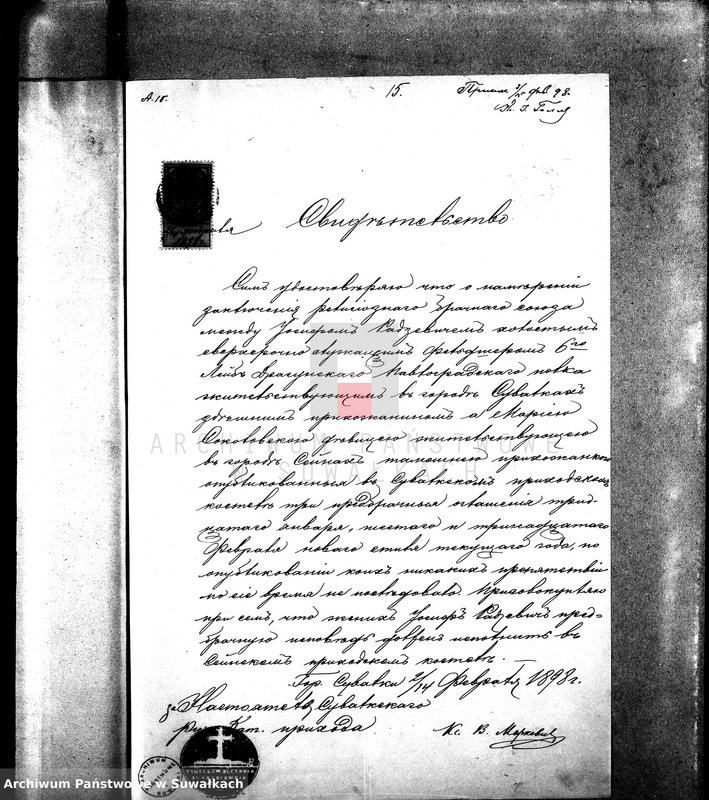 А. 15.
15.
февраля
1898 г.
Свидѣтельство
Симъ удостовѣряю что о намѣреніи
заключенія религіознаго брачнаго союза
между Іосифомъ Радзевичемъ холостымъ
сверхсрочно служащимъ фельдшеромъ 6го
Лейбъ Драгунскаго Павлоградскаго полка
жительствующимъ въ городѣ Сувалкахъ
здѣшнимъ прихожаниномъ а Маріею
Соколовскою дѣвицею жительствующею
въ городѣ Сейнахъ тамошнею прихожанкою
опубликованныя въ Сувалкскомъ приходскомъ
костелѣ три предбрачныя оглашенія трид-
цатаго января, шестаго и тринадцатаго
февраля новаго стиля текущаго года, по
опубликованіи коихъ никакихъ препятствій
по сіе время не послѣдовало. Присовокупляю
при семъ, что женихъ Іосифъ Радзевичъ пред-
брачную исповѣдь долженъ исполнить въ
Сейнскомъ приходскомъ костелѣ.
Гор. Сувалки 2/14 Февраля 1898 г.
за Настоятеля Сувалкскаго
рим. Кат. прихода
Кс. В.
ARCHIWUM PAŃSTWOWE
W SUWAŁKACH
Archiwum Państwowe w Suwałkach